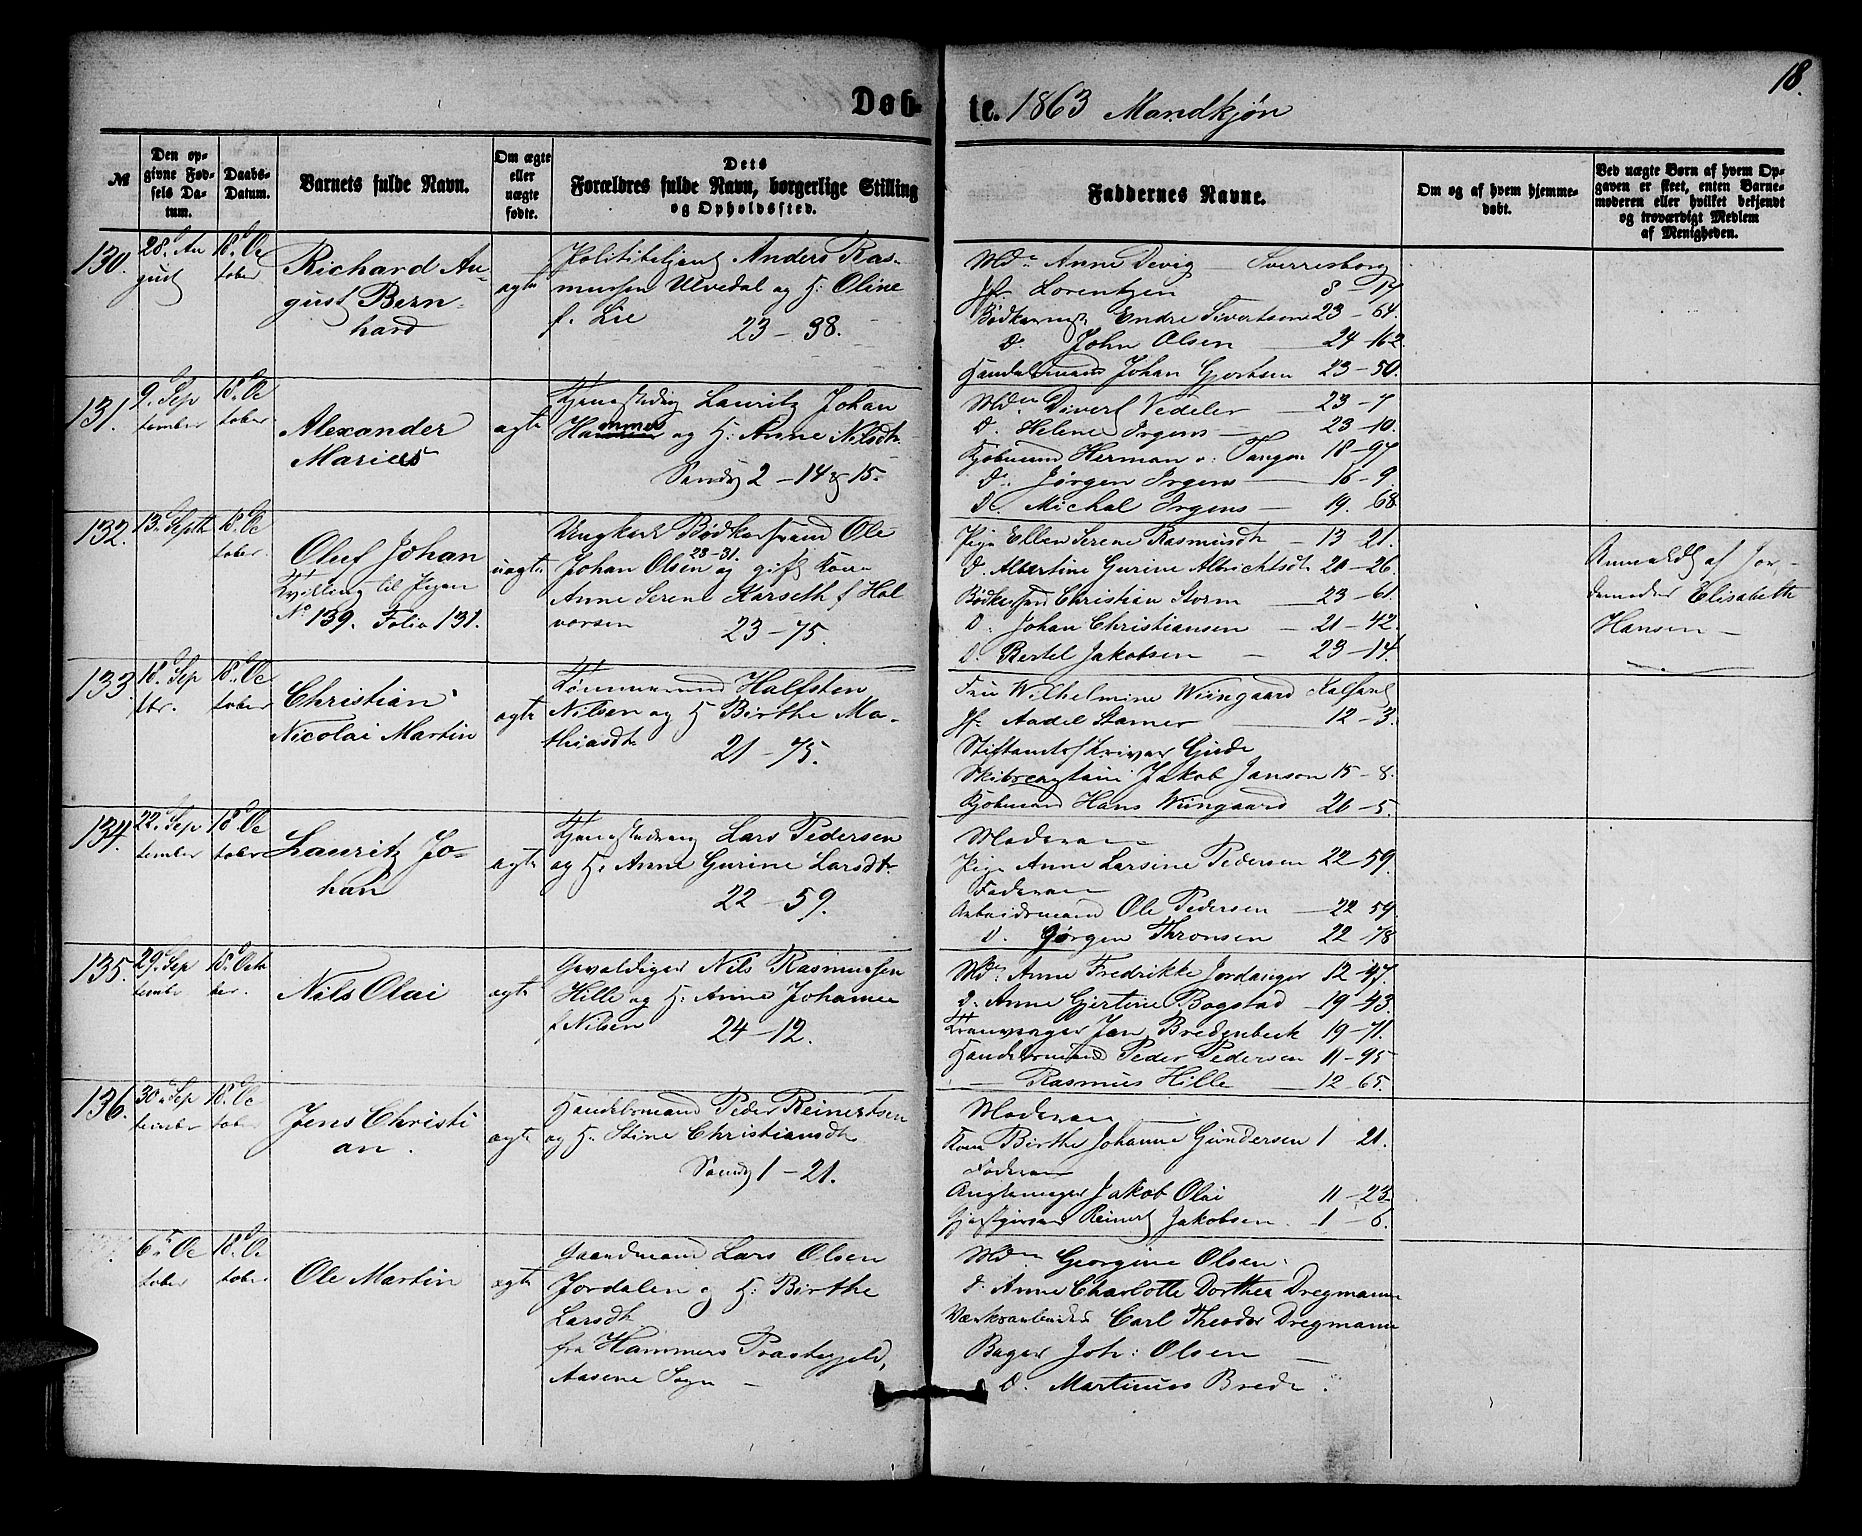 18.
Døb-te. 1863 Mandkjøn
№
Den op-
givne Fød-
sels Da-
tum.
Daabs-
Datum.
Barnets fulde Navn.
Om ægte
eller
uægte
fødte.
Dets
Forældres fulde Navn, borgerlige Stilling
og Opholdssted.
Faddernes Navne.
Om og af hvem hjemme-
døbt.
Ved uægte Børn af hvem Op-
gaven er skeet, enten Barne-
moderen eller hvilket bekjendt
og troværdigt Medlem
af Menigheden.
130.
28. Au
gust
18. Oc
tober
Richard Au-
gust Bern-
hard
ægte
Politibetjent Anders Ras-
mussen Ulvedal og H: Oline
f. Lie 23-38.
Md. Anne Devig - Sverresborg
Jfr. Lorentzen 8-17
Bødkersv. Endre Sivertsen 23-64.
D. John Olsen 24-162.
Handelsmand Johan Gjertsen 23-50.
131.
9. Sep
tember
18. Oc
tober
Alexander
Marius
ægte
Lauritz Johan
og H: Anne Nilsdt.
Sandv 2-14 & 15.
Md. Divert Vedeler 23-7
D. Helene Irgens 23-10.
Kjøbmand Herman v: Tangen 18-97
D. Jørgen Irgens 16-9.
D. Michal Irgens 19-68.
132.
13. Septb
18. Oc
tober.
Oluf Johan
Tvilling til Pigen
No 139. Folio 131.
uægte
Ungkarl Bødkersvend Ole
Johan Olsen 23-31. og gift Kone
Anne Serene Karseth f Hal
vorsen 23-75.
Pige Ellen Serene Rasmusdt 13-21.
D. Albertine Gurine Albrichtsdt 20-26
Bødkersvend Christian Storm 23-61.
D. Johan Christiansen 21-42.
D. Bertel Jakobsen 23-14.
Anmeldt af Jor-
demoder Elisabeth
Hansen
133.
18. Sep
tbr.
18. Oc
tober
Christian
Nicolai Martin
ægte
Tømmermand Halfsten
Nilsen og H Birthe Ma-
thiasdt.
21-75.
Fru Wilhelmine Wiingaard Kalfaret
Jf. Aadel Stamer 12-3.
Stiftamtsskriver Gude
Skibscaptain Jakob Janson 15-8.
Kjøbmand Hans Wiingaard 20-5.
134.
22. Sep
tember
18. Oc
tober
Lauritz Jo-
han
ægte
Lars Pedersen
og H. Anne Gurine Larsdt.
22-59.
Moderen
Pige Anne Larsine Pedersen 22-59.
Faderen
Arbeidsmand Ole Pedersen 22-59.
D. Jørgen Thronsen 22-78
135.
29. Sep
tember
18. Octo
ber.
Nils Olai
ægte
Gevaldiger Nils Rasmussen
Hille og H. Anne Johanne
f Nilsen 24-12.
Md. Anne Fredrikke Jordanger 12-47.
D. Anne Gjertine Bogstad 19-43.
Jan Bredenbeck 19-71.
Handelsmand Peder Pedersen 11-95
Rasmus Hille 12-65.
136.
30. Sep
tember
18. Oc
tober
Jens Christi
an.
ægte
Handelsmand Peder Reinertsen
og H. Stine Christiansdt
Sandv 1-21.
Moderen
Kone Birthe Johanne Gundersen 1-21.
Faderen
Jakob Olai 11-23
Gjestgiver Reinert Jakobsen 1-6.
6. Oc
tober
18. Oc
tober
Ole Martin
ægte
Gaardmand Lars Olsen
Jordalen og H: Birthe
Larsdt
fra Hammers Præstegjeld,
Aasene Sogn
Md. Georgine Olsen.
D. Anne Charlotte Dorthea Dregmann
Værksarbeider Carl Theodor Dregmann
Bager Joh: Olsen
D. Martinus Brede.